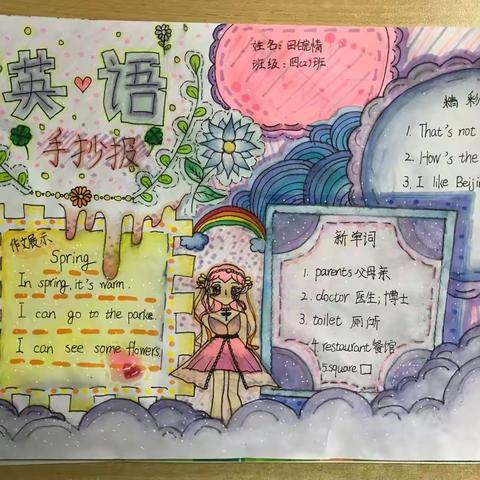 英语
手抄报
姓名:田婉情
班级:四(2)班
精彩
1. That's not
2. How's the
3. I like Beijin
作文展示
Spring
In spring, it's warm.
I can go to the parke.
I can see some flowers.
新字词
1. parents 父母亲
2. doctor 医生,博士
3. toilet 厕所
4. restaurant 餐馆
5. square 口